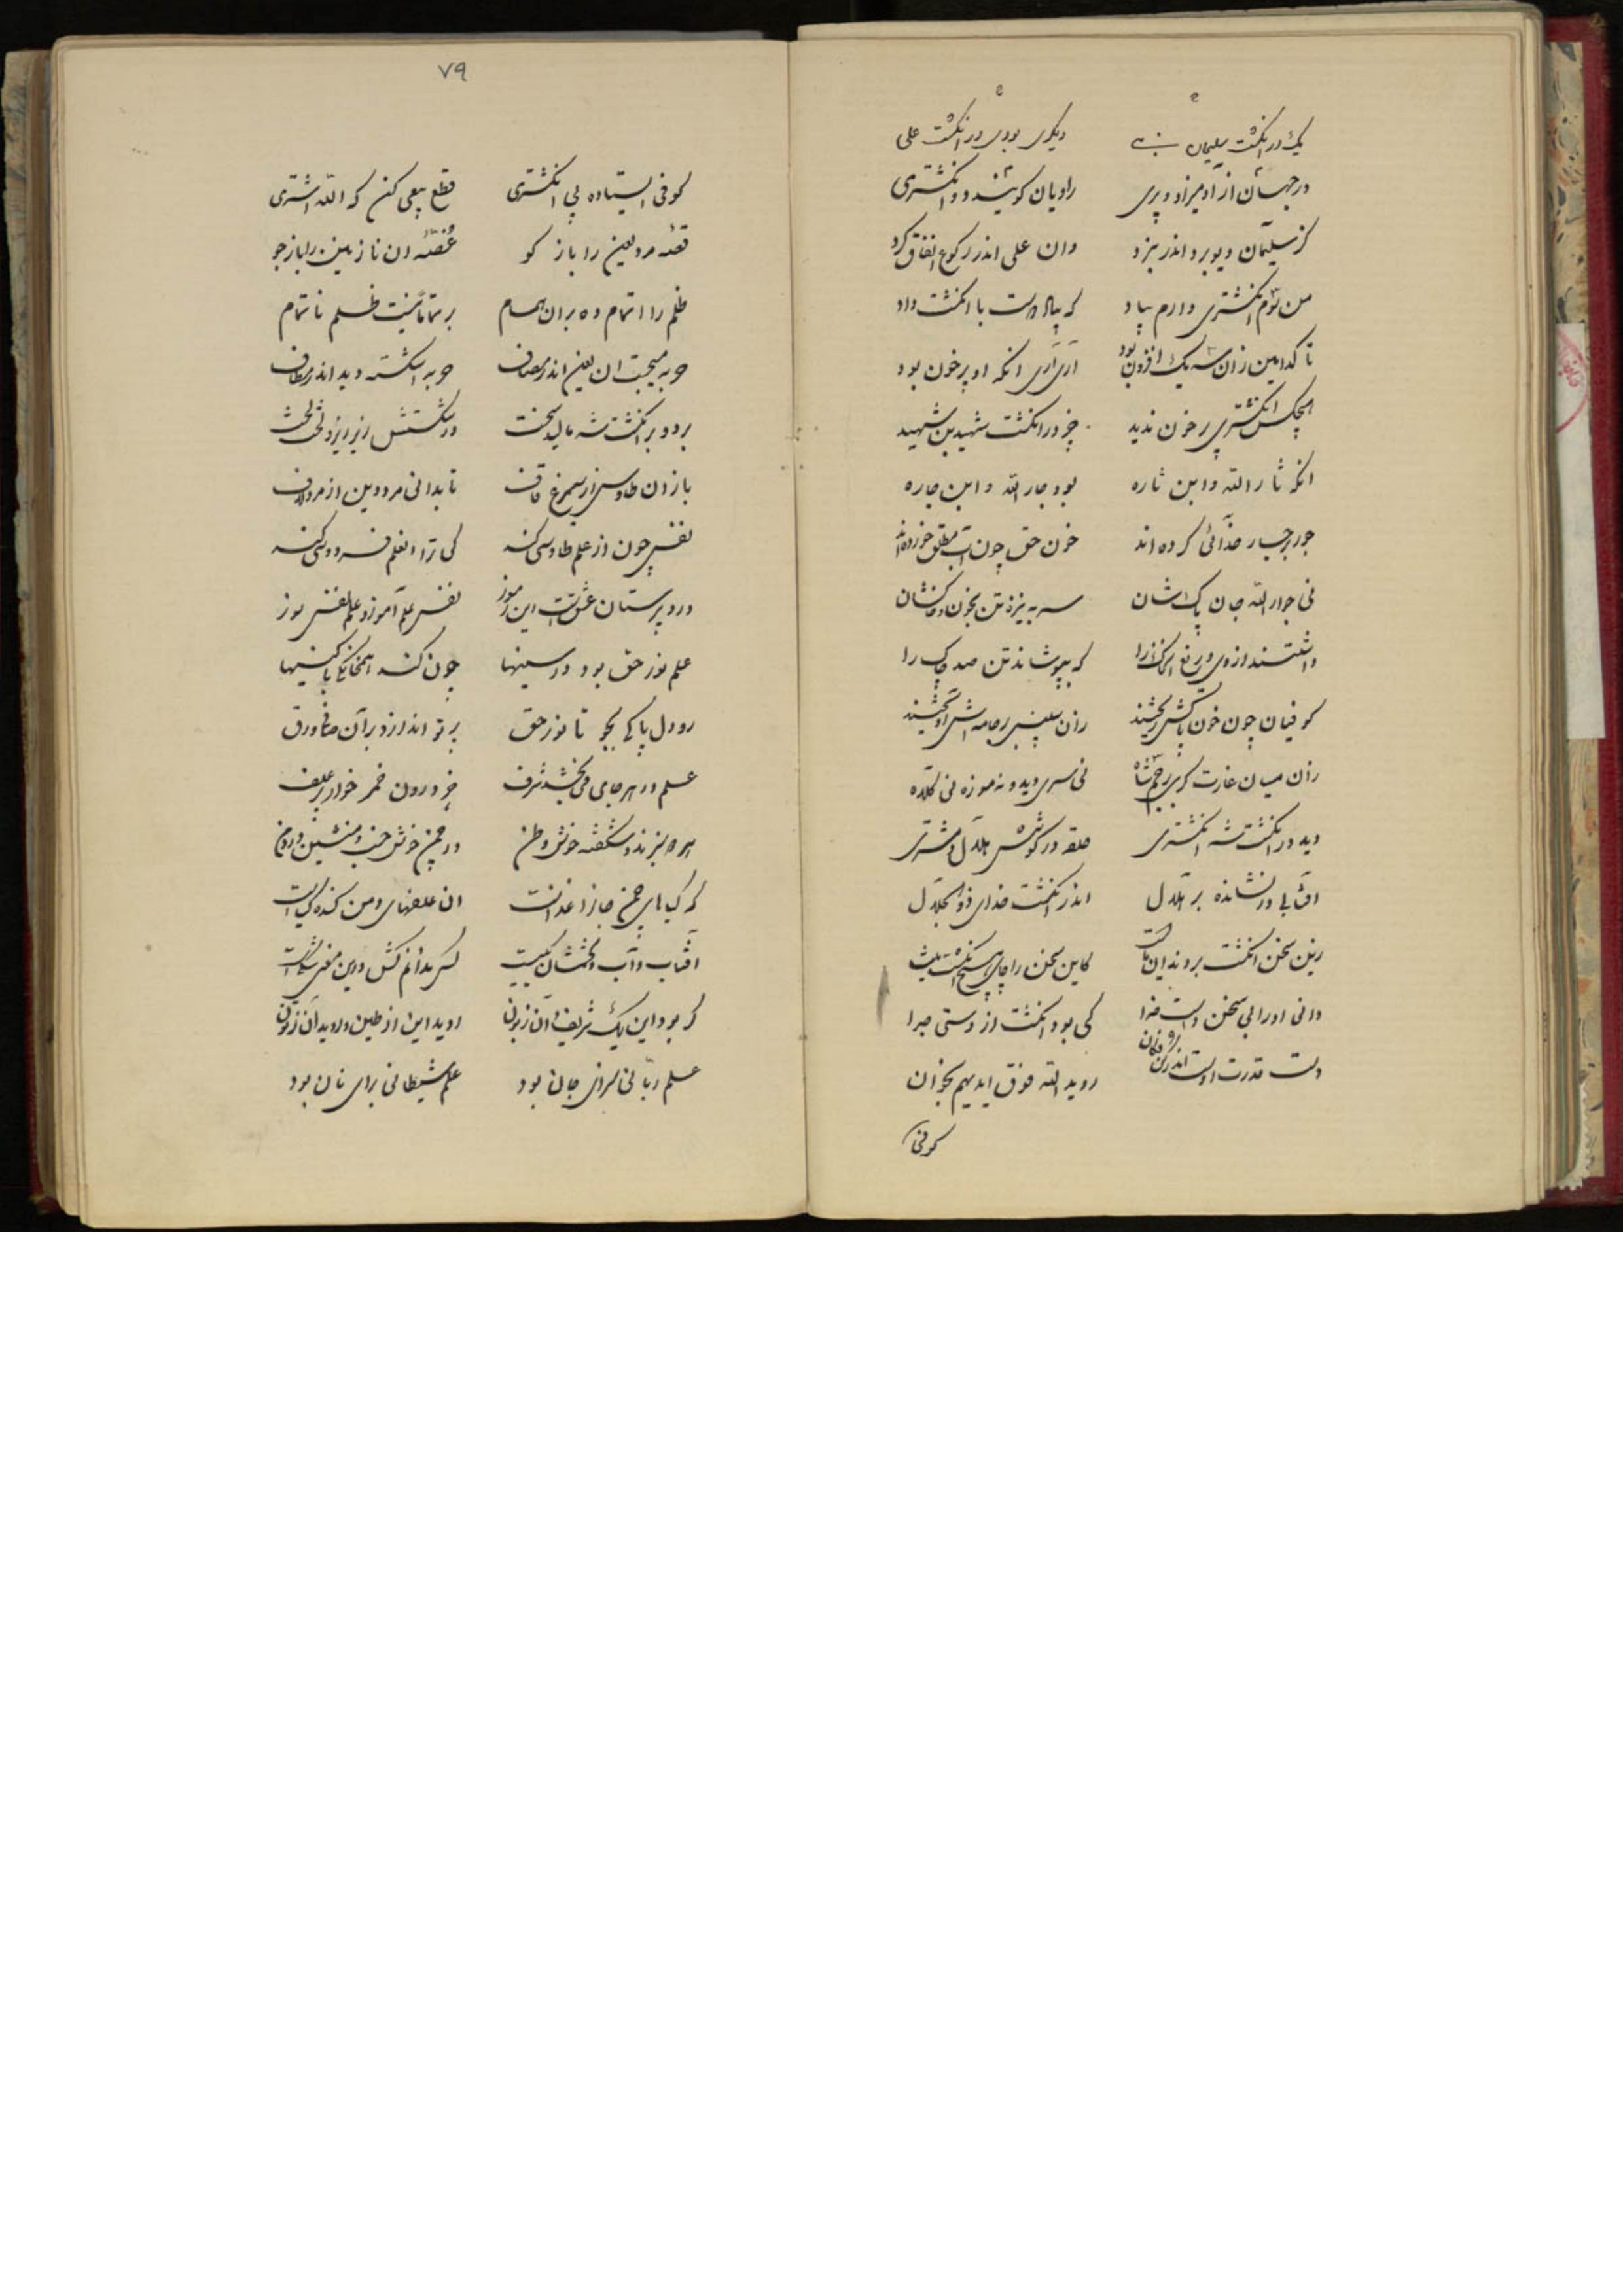 یک در انگشت سلیمان نبی دیگری بودی در انگشت علی
در جهان از آدمیزاد و پری راویان گویند دو انگشتری
کز سلیمان دیو برد اندر نبرد وان علی اندر رکوع انفاق کرد
من سوم انگشتری دارم بیاد که بیک دست با انگشت داد
تا کدامین زان سه یک افزون بود آری آری آنکه او پر خون بود
هیچکس انگشتری پر خون ندید جز در انگشت شهید بن شهید
انکه ثار الله و ابن ثاره بود جار الله و ابن جاره
جور بر جار خدائی کرده اند خون حق چون آب مطلق خورده اند
نی جوار الله جان پاکشان سر به نیزه تن بخون و خاکشان
داشتند از وی دریغ آن را که بپوشاند تن صد چاک را
کوفیان چون خون پاکش ریختند زان سپس بر جامه اش آویختند
زان میان غارت گری بر جسم شاه نی سری دید و نه موزه نی کلاه
دید در انگشت شه انگشتری حلقه در گوشش هلال و مشتری
آفتابی در نشانده بر هلال اندر انگشت خدای ذو الجلال
زین سخن انگشت بر دندان کاین سخن را جای
دانی او را بی سخن دست خدا کی بود انگشت از دستی جدا
دست قدرت اوست اندر کن فکان رو ید الله فوق ایدیهم بخوان
کوفی
۷۹
کوفی استاده پی انگشتری قطع بیعی کن که الله اشتری
قصه مرد لعین را باز گو غصه ان نازنین را باز جو
ظلم را اتمام ده بر ان همام بر تمامیت ظلم ناتمام
حربه میجست ان لعین اندر مصاف حربه اشکسته دید اندر مطاف
برد و بر انگشت شه مالید سخت در شکستش ریز ریز و لخت لخت
باز دان طاوس از سیمرغ قاف تا بدانی مرد دین از مرد لاف
نفس چون از علم طاوسی کند کی ترا العلم فردوسی کند
درد پرستان عشقست این رموز نفس علم آموز و علم نفس سوز
علم نور حق بود در سینها چون کند همخانگی با کینها
رو دل پاکی بجو تا نور حق پرتو اندازد بر آن صافی ورق
علم در هر جای می بخشد شرف جز درون خمر خوار بر علف
هر دو سبزند و شگفته خوش وطن در چمن خوش خسب و منشین در دمن
که گیاهای چمن جان را غذاست ان علفهای دمن گنده گیاست
آفتاب و آب و تخمشان یکیست
گر بود این یک شریف و آن زبون روید این از طین و روید آن ز تون
علم ربانی برای جان بود علم شیطانی برای نان بود